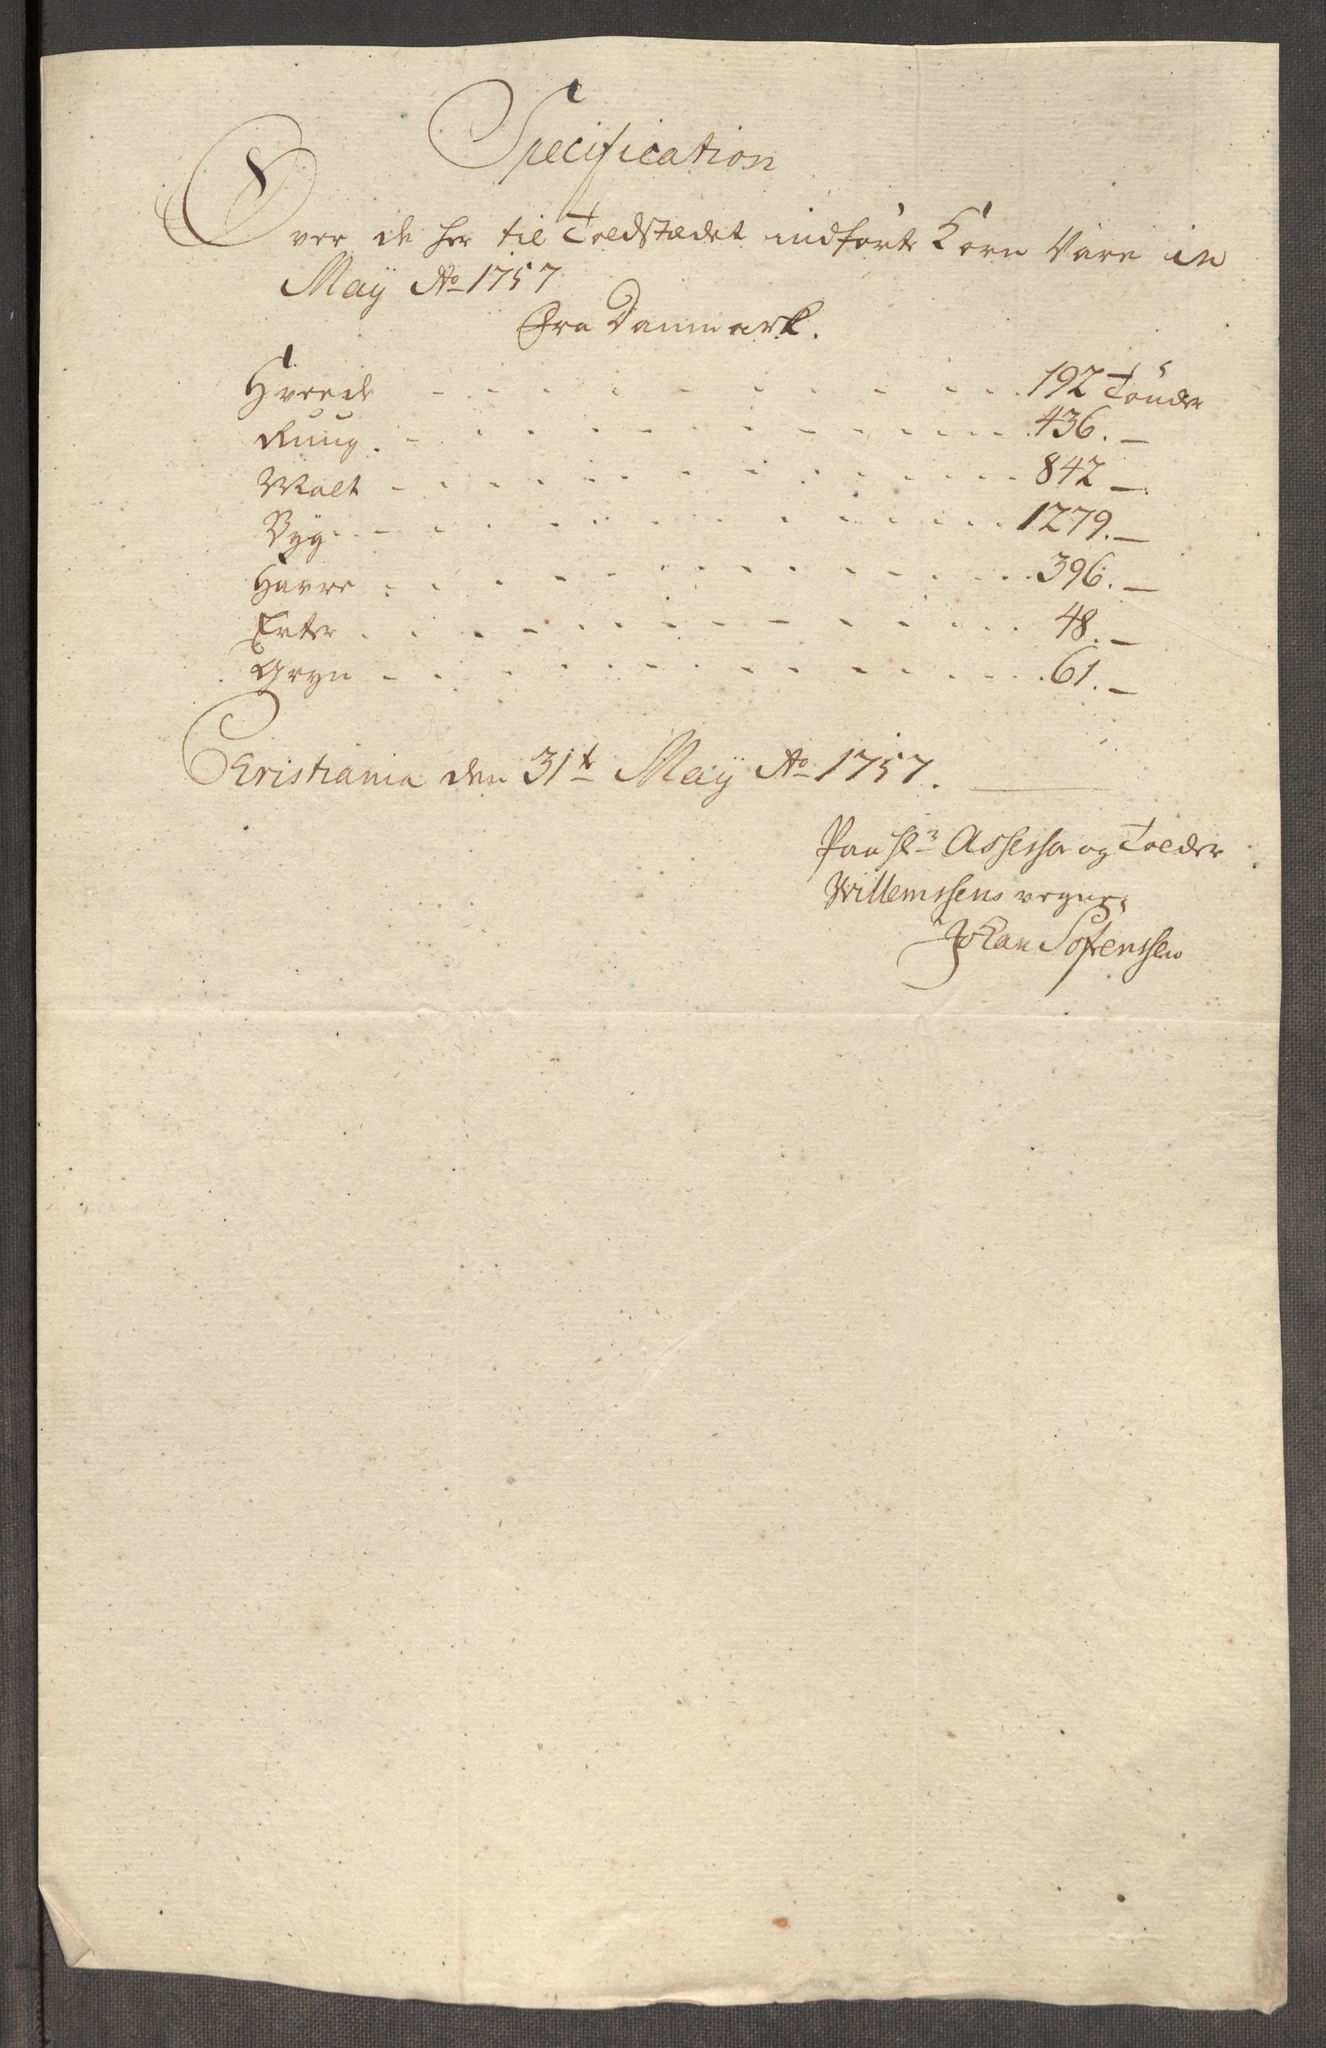 Specification
Over de her til Toldstædet indførte Korn Vare in
Maÿ Ao 1757
fra Danmark.
Hvede - - - - - - - - - 192 Tönder
Rŭŭg. - - - - - - - - - 436. —
Malt - - - - - - - - - 842 —
Byg - - - - - - - - - 1279. —
Havre - - - - - - - - - 396. —
Erter - - - - - - - - - 48. —
Gryn - - - - - - - - - 61. —
Cristiania den 31t Maÿ Ao 1757.
Paa Hr Assessor og Tolder
Willemssens vegne,
Johan Sörenssen